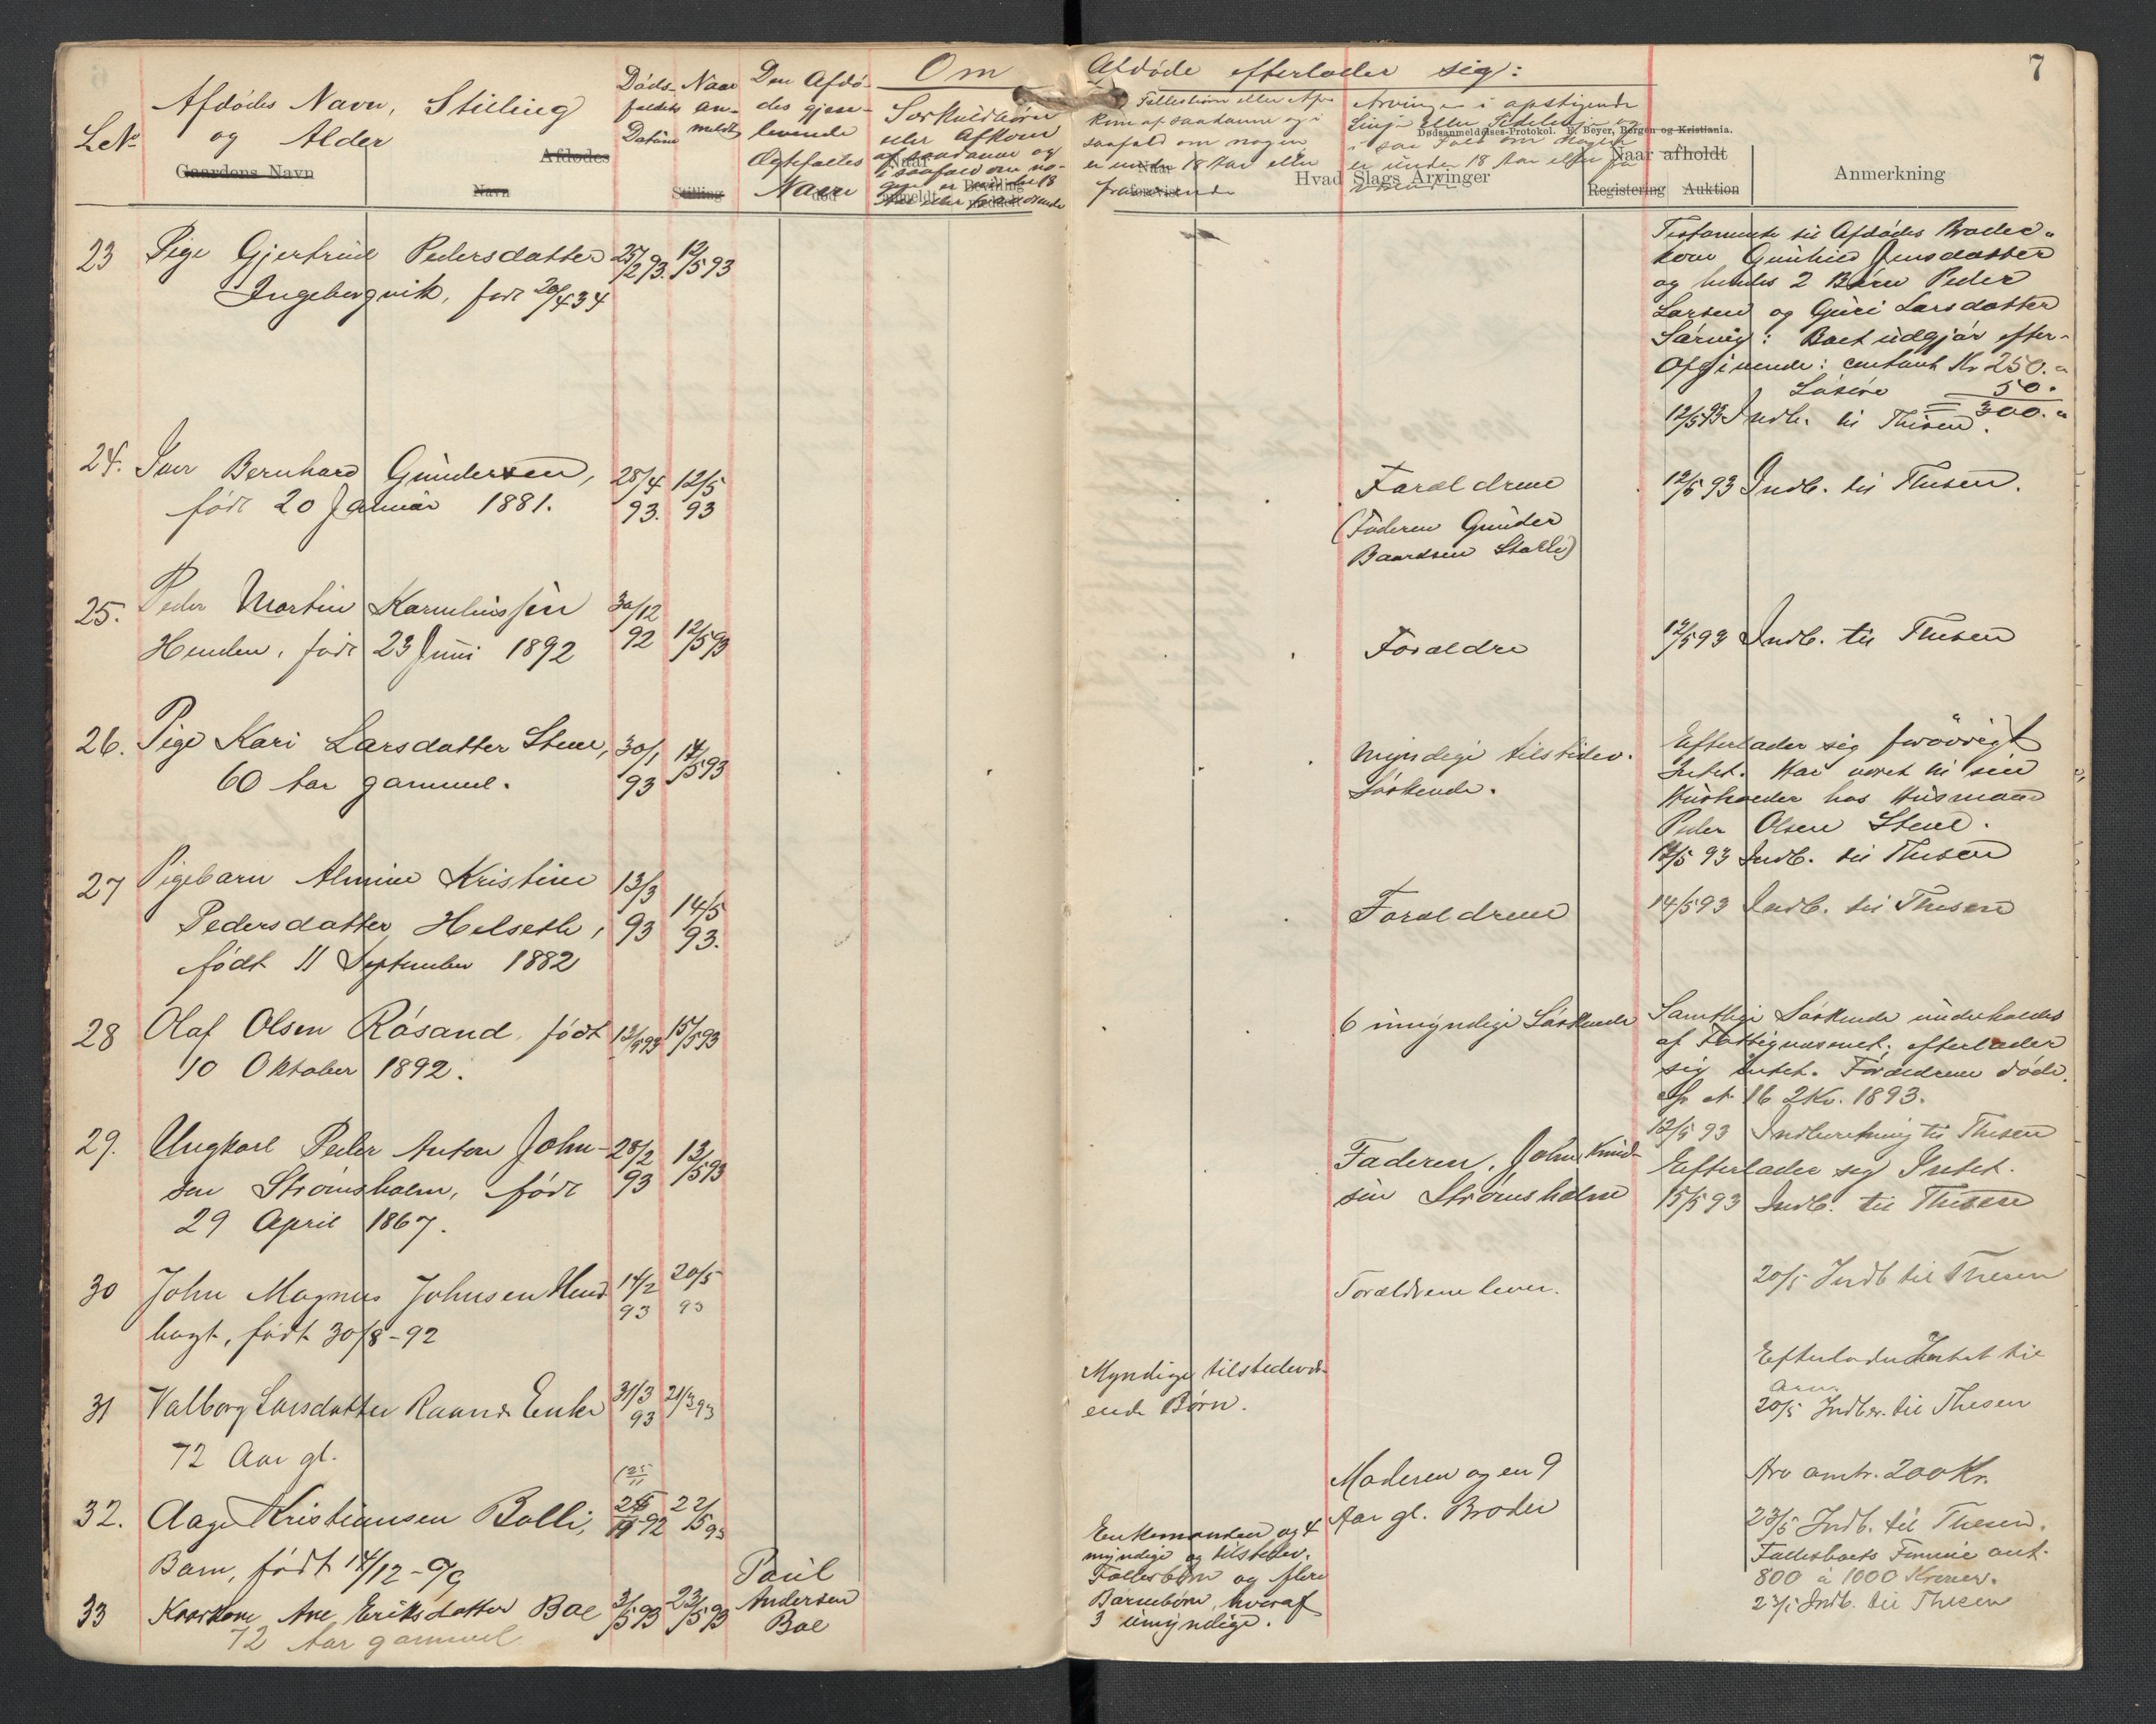 7
Om Afdøde efterlader sig:
Afdødes Navn, Stilling
og Alder
LNo
Gaardens Navn
Afdødes
Navn
Døds-
faldets
Datum
Stilling
Naar
an-
meldt
Den Afdø-
des gjen-
levende
Ægtefælles
Navn
død
Særkuldbørn
eller Afkom
af saadanne og
Fællesbørn eller Afkom
af saadanne og i
saafald om nogen
er under 18 Aar eller
fraværende
Arvinger i opstigende
Linje eller Sidelinje og
i saa Fald om nogen
er under 18 Aar eller
Dødsanmeldelses-Protokol. F. Beyer, Bergen og Kristiania.
Hvad Slags Arvinger
Naar afholdt
Registering Auktion
Anmerkning
23 Pige Gjertrud Pedersdatter 25/2 93. 12/5 93
Ingebergvik, født 20/4 34
Testamente til Afdødes Broder-
kone Gunhild Jensdatter
og hendes 2 Børn Peder
Larsen og Guri Larsdatter
Sørvig: Boet udgjør efter
Opgivende: contant Kr 250.
Løsøre 50.
= 300.
12/5 93 Indb. til Thesen.
24. Iver Bernhard Gundersen, 28/4 93. 12/5 93
født 20 Januar 1881.
Forældrene
(Faderen Gunder
Baardsen Stalle)
12/5 93 Indb. til Thesen.
25. Peder Martin Karneliussen 30/12 92 12/5 93
Henden, født 23 Juni 1892
Forældre
12/5 93 Indb. til Thesen
26. Pige Kari Larsdatter Stene, 30/1 93 14/5 93
60 Aar gammel.
Myndige tilstedev.
Søskende.
Efterlader sig forøvrigt
Intet. Har været til sin
Husholder hos Husmand
Peder Olsen Stene.
14/5 93 Indb. til Thesen
27 Pigebarn Almine Kristine 13/3 93 14/5 93.
Pedersdatter Helseth,
født 11 September 1882
Forældrene
14/5 93 Indb. til Thesen
28 Olaf Olsen Røsand, født 13/5 93 15/5 93
10 Oktober 1892.
6 umyndige Søskende
Samtlige Søskende underholdes
af Fattigvæsenet. efterlader
sig intet. Forældrene døde.
16 2Kv. 1893.
12/5 93 Indberetning til Thesen
29. Ungkarl Peder Anton John- 28/2 93 13/5 93
sen Strømsholm, født
29 April 1867.
Faderen, John Knud-
sen Strømsholm
Efterlader sig Intet.
15/5 93 Indb. til Thesen
30 John Magnus Johnsen Hend 14/2 93 20/5 93
hagt, født 30/8-92
Forældrene lever.
20/5 Indb til Thesen
31 Valborg Larsdatter Raand Enke 31/3 93 21/3 93
72 Aar gl.
Myndige tilstedevær-
ende Børn.
Efterlader Intet til
Arv.
20/5 Indber. til Thesen
32. Aage Kristiansen Bolli, 92 22/5 93
Barn, født 14/12-
Moderen og en 9
Aar gl. Broder
Arv omtr. 200 Kr.
23/5 Indb. til Thesen.
33 Kaarkone Ane Eriksdatter Boe 3/5 93 23/5 93
72 Aar gammel
Paul
Andersen
Boe
Enkemanden og 4
myndige og tilstedev.
Fællesbørn og flere
Børnebørn, hvoraf
3 umyndige.
Fællesboets Formue ant.
800 à 1000 Kroner.
23/5 Indb. til Thesen